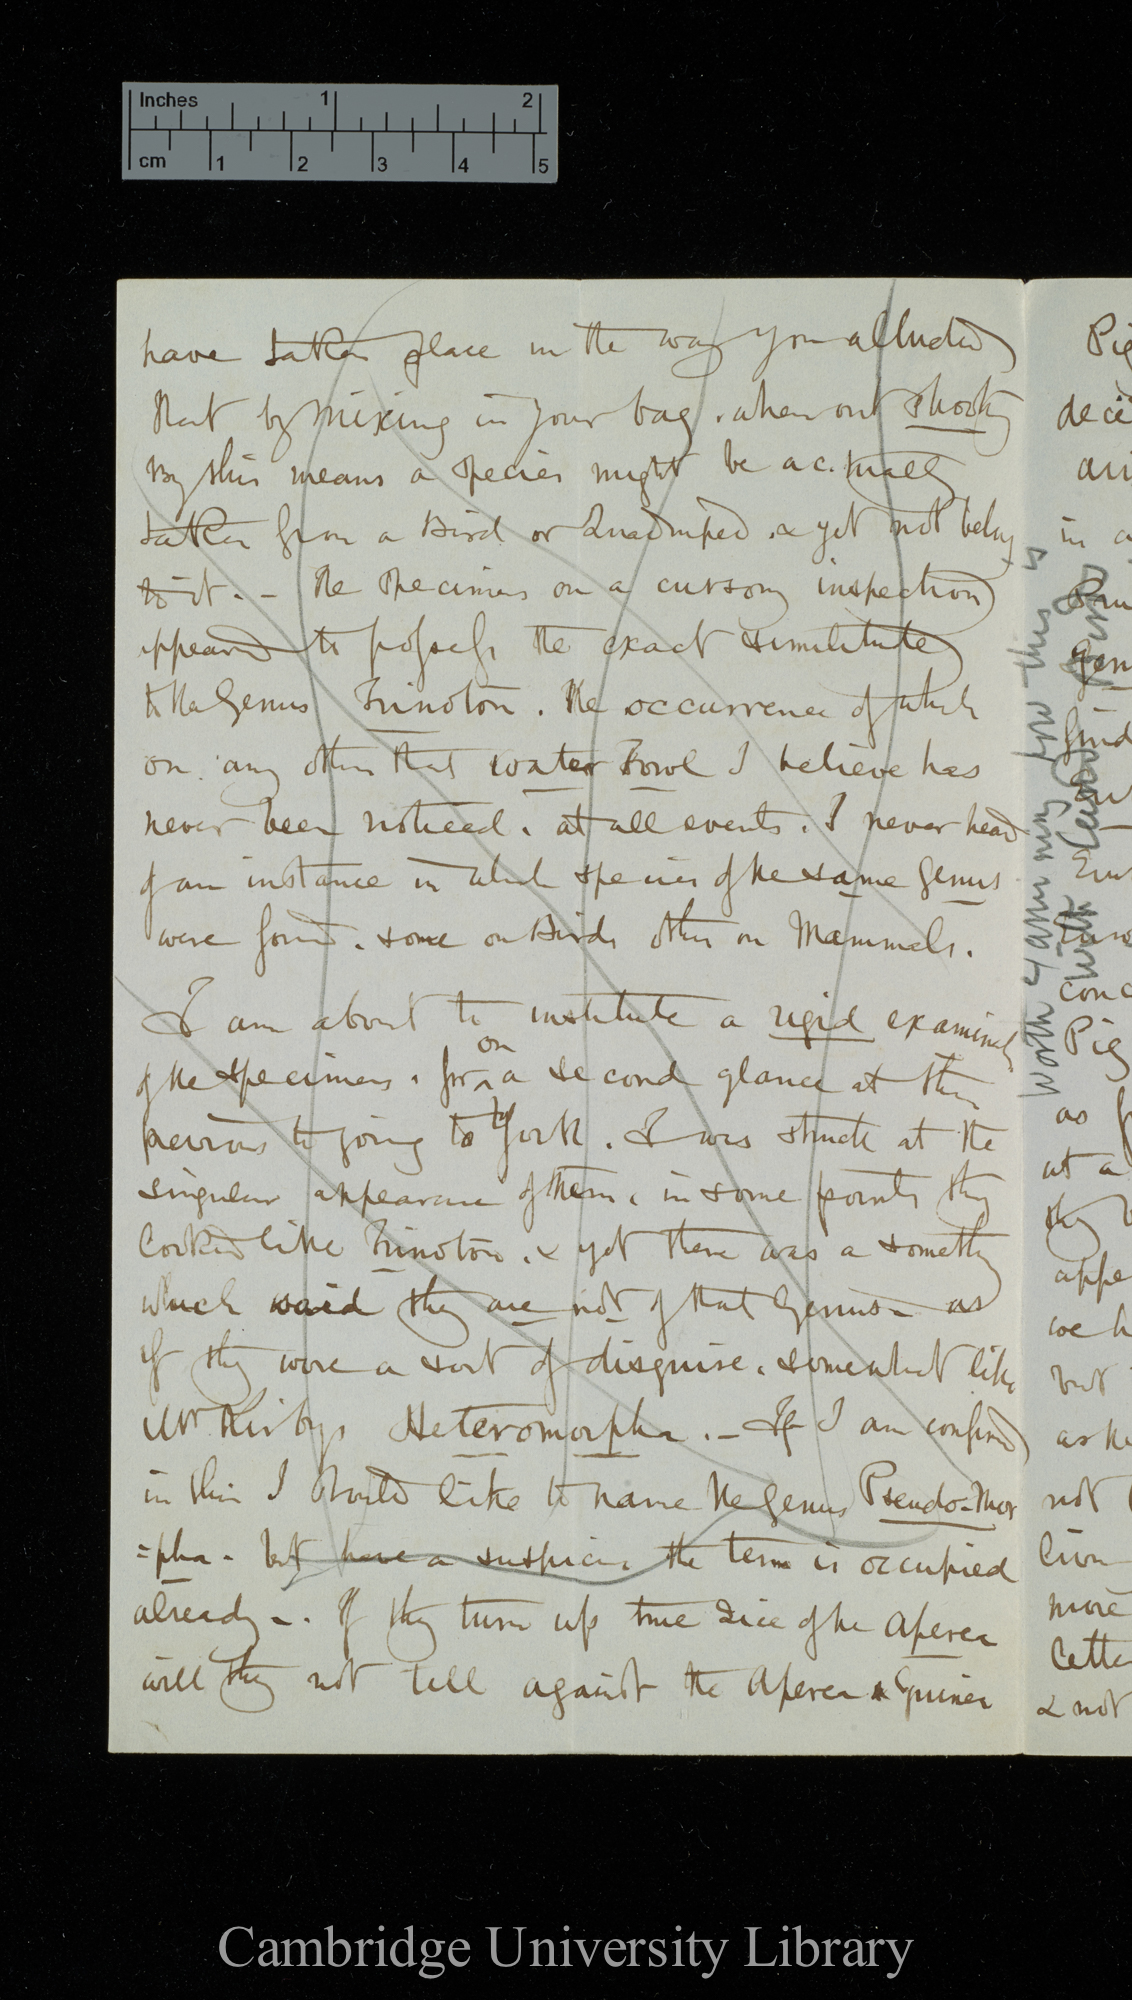 Inches 1 2
cm 1 2 3 4 5
have taken place in the way you alluded
that by mixing in your bag. when out shooting
By this means a species might be actually
taken from a Bird or Quadruped. & yet not belong
to it. - The specimens on a cursory inspection
appeared to possess the exact similitude
to the Genus Trinoton. The occurrence of which
on any other that water Fowl I believe has
never been noticed. at all events. I never heard
of an instance in which species of the same Genus
were found. some on Birds other on Mammals.
I am about to institute a rigid examination
on
of the specimens. for a second glance at them
previous to going to York. I was struck at the
singular appearance of them. in some points they
looked like Trinoton. & yet there was a something
which said they are not of that Genus - as
if they wore a sort of disguise. somewhat like
Mr Kirbys Heteromorpha. - If I am confirmed
in this I should like to name the Genus Pseudo-Mor
=pha - but have a suspicion the term is occupied
already -. If they turn up true Lice of the Aperea
will they not tell against the Aperea & Guinea
Pig
in
Pig
as
at a
they
appe
we h
but
not
more
& not
worth & after any how this is
Cambridge University Library